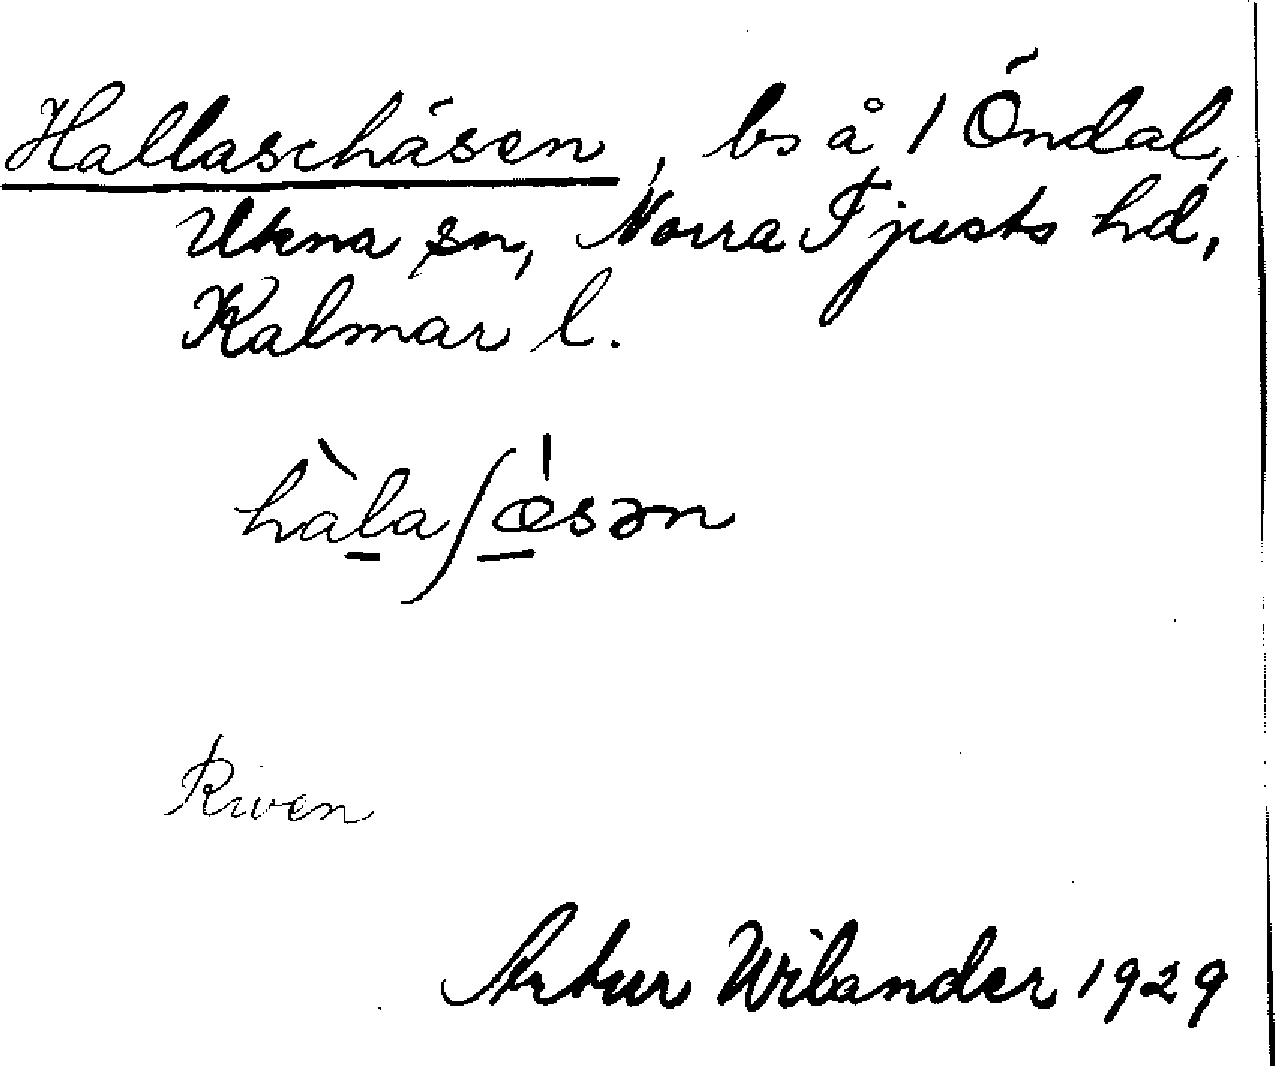 Hallaschäsen, bs å 1 Öndal,
Ukna sn, Norra Tjusts hd,
Kalmar l.
hàlaʃǿsən
Riven
Artur Wilander 1929